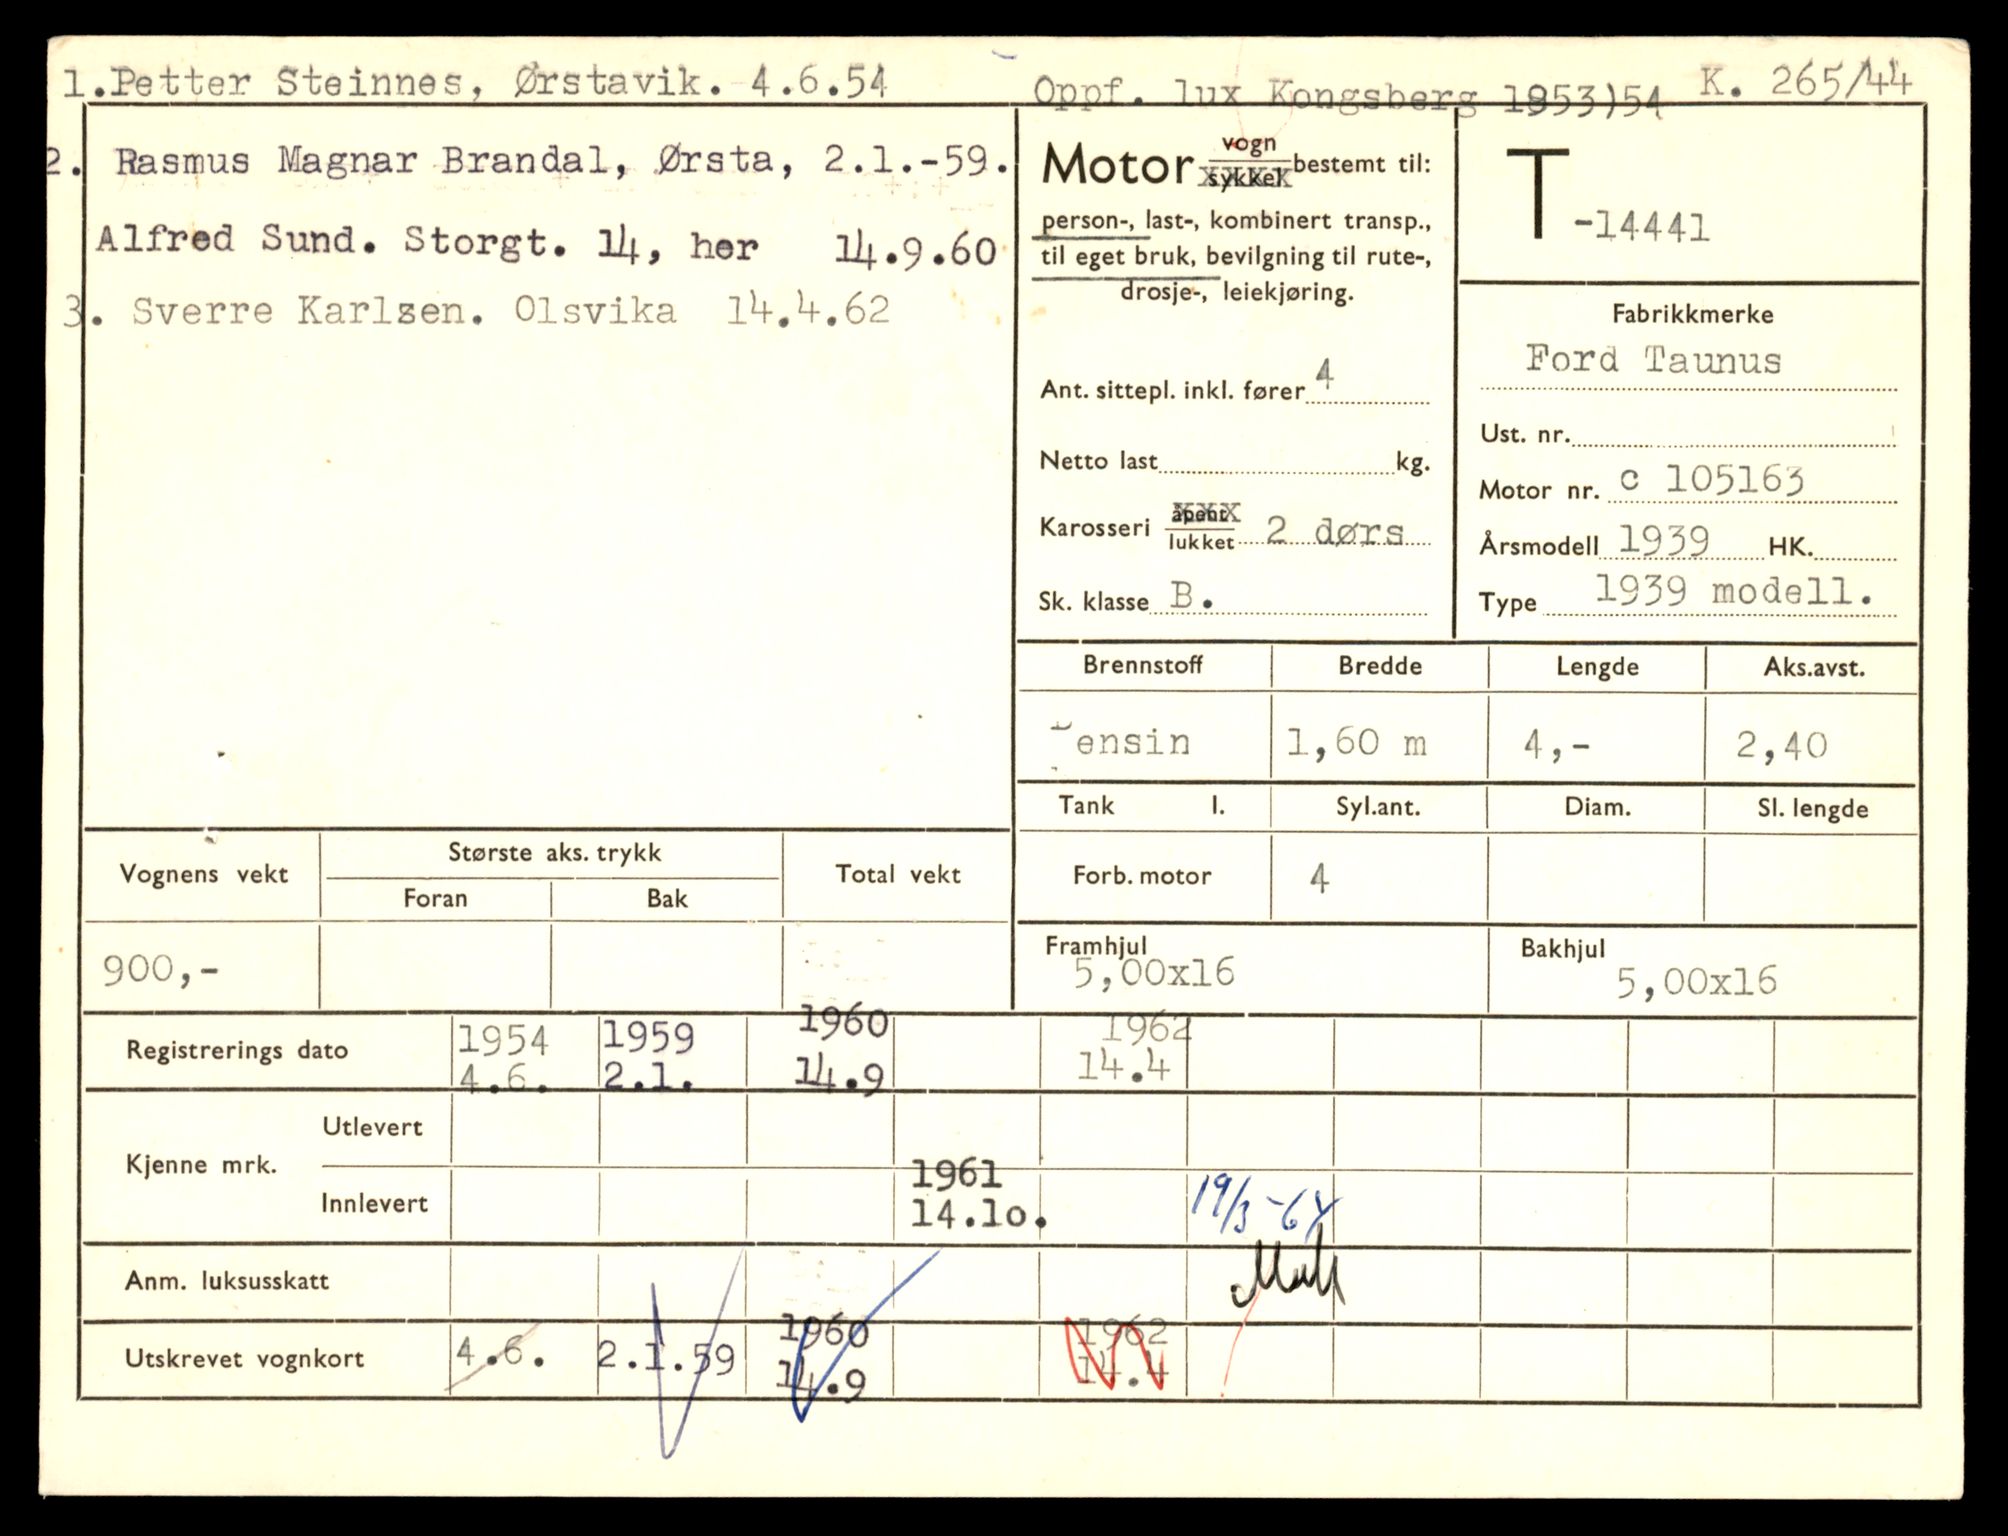 1.Petter Steinnes, Ørstavik. 4.6.54
Oppf. lux Kongsberg 1953)54 K. 265/44
2. Rasmus Magnar Brandal, Ørsta, 2.1.-59.
Alfred Sund. Storgt. 14, her 14.9.60
3. Sverre Karlsen. Olsvika 14.4.62
Motor vogn sykkel bestemt til:
person-, last-, kombinert transp.,
til eget bruk, bevilgning til rute-,
drosje-, leiekjøring.
Ant. sittepl. inkl. fører 4
Netto last kg.
Karosseri åpent lukket 2 dørs
Sk. klasse B.
T -14441
Fabrikkmerke
Ford Taunus
Ust. nr.
Motor nr. c 105163
Årsmodell 1939 HK.
Type 1939 modell.
Brennstoff Bredde Lengde Aks.avst.
Bensin 1,60 m 4,- 2,40
Tank l. Syl.ant. Diam. Sl. lengde
Forb. motor 4
Framhjul Bakhjul
5,00x16 5,00x16
Vognens vekt Største aks. trykk Total vekt
Foran Bak
900,-
Registrerings dato 1954 1959 1960 1962
4.6. 2.1. 14.9 14.4
Kjenne mrk. Utlevert
Innlevert 1961 19/3-64
14.10.
Anm. luksusskatt
Utskrevet vognkort 4.6. 2.1.59 1960 1962
14.9 14.4